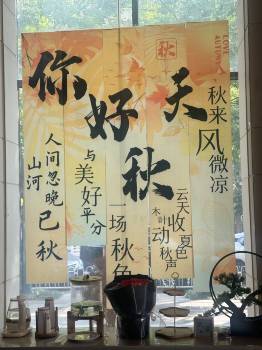 秋
LOVE
AUTUMN
你好
秋天
秋来
风微凉
云天收夏色
木叶动秋声。
与美好平分
一场秋色
人间忽晚
山河已秋